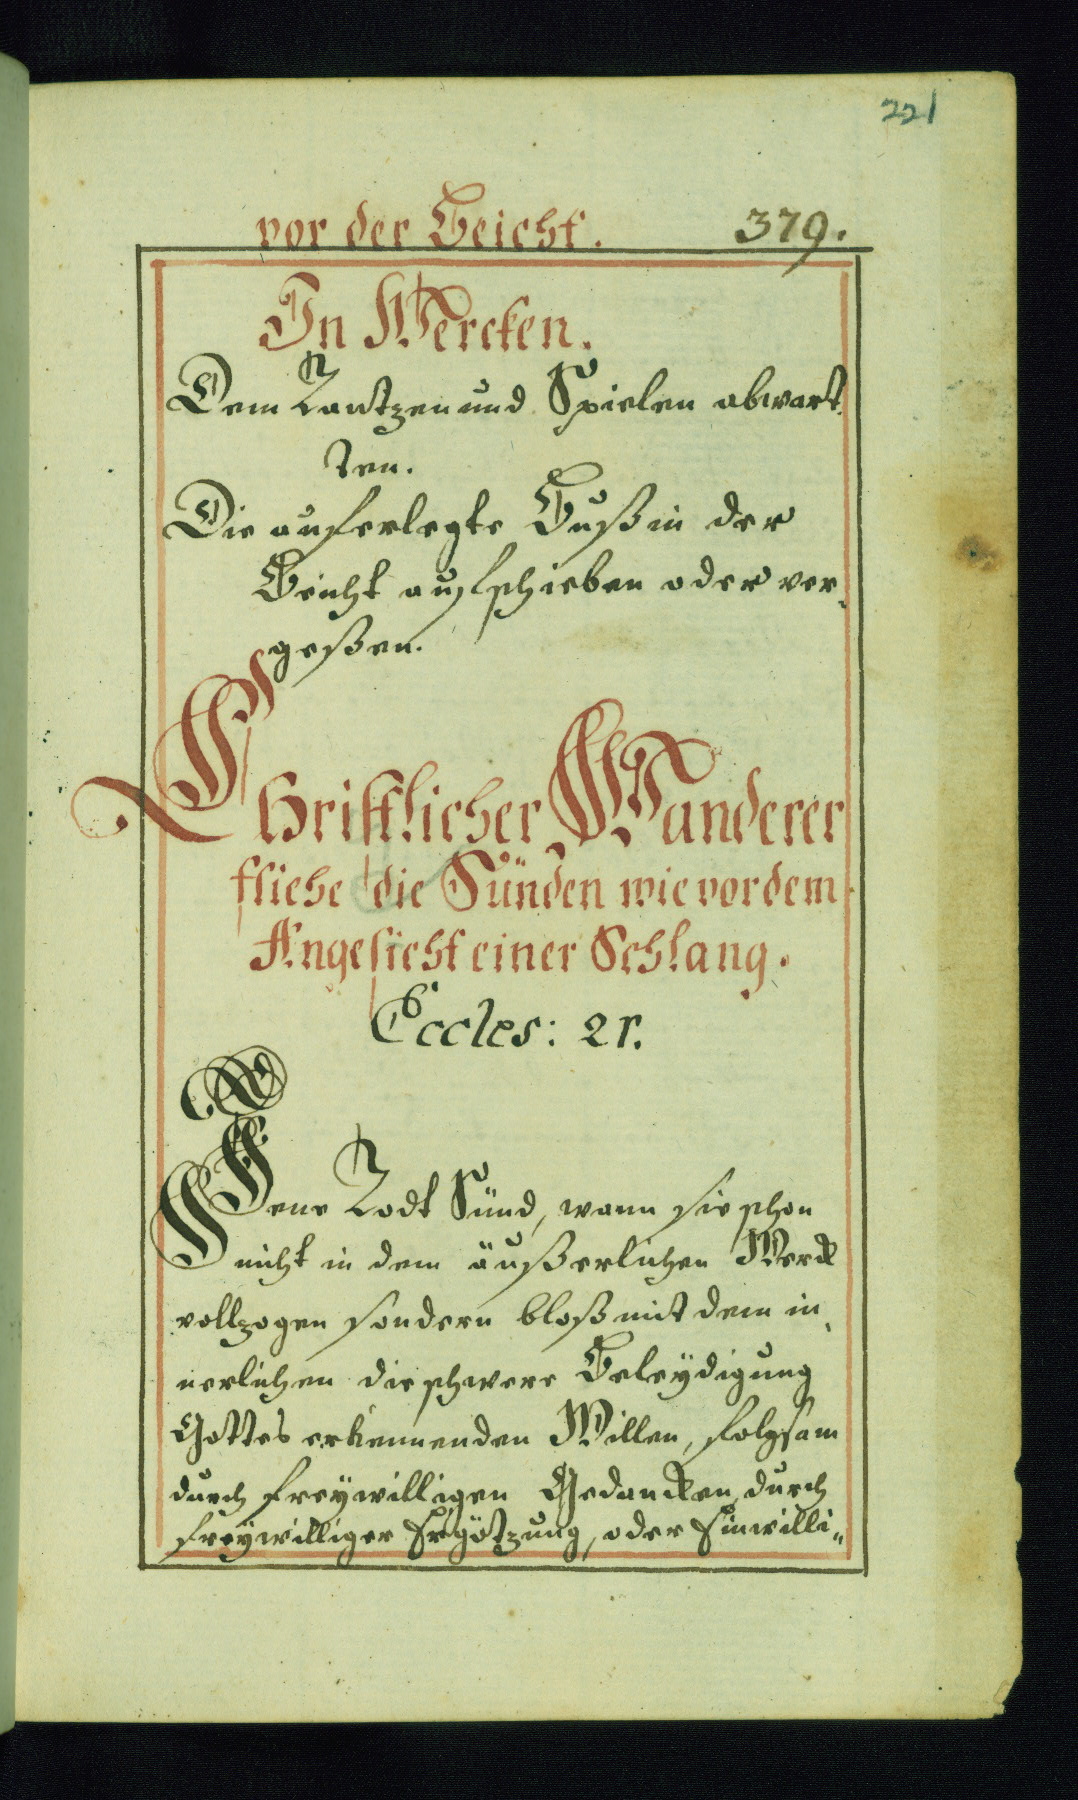 221
vor der Beicht. 379.
In Wercken.
Dem Tantzen und Spielen abwart,
ten.
Die auferlegte Buß in der
Beicht aufschieben oder ver,
geßen.
CHristlicher Wanderer
fliehe die Sünden wie vor dem
Angesicht einer Schlang.
Eccles: 21.
Jene Todt Sünd, wann sie schon
nicht in dem äußerlichen Werck
vollzogen sondern bloß mit dem in,
nerlichen die schwere Beleÿdigung
Gottes erkennenden Willen, folgsam
durch freÿwilligen Gedancken, durch
freÿwilliger Ergötzung, oder Einwilli„